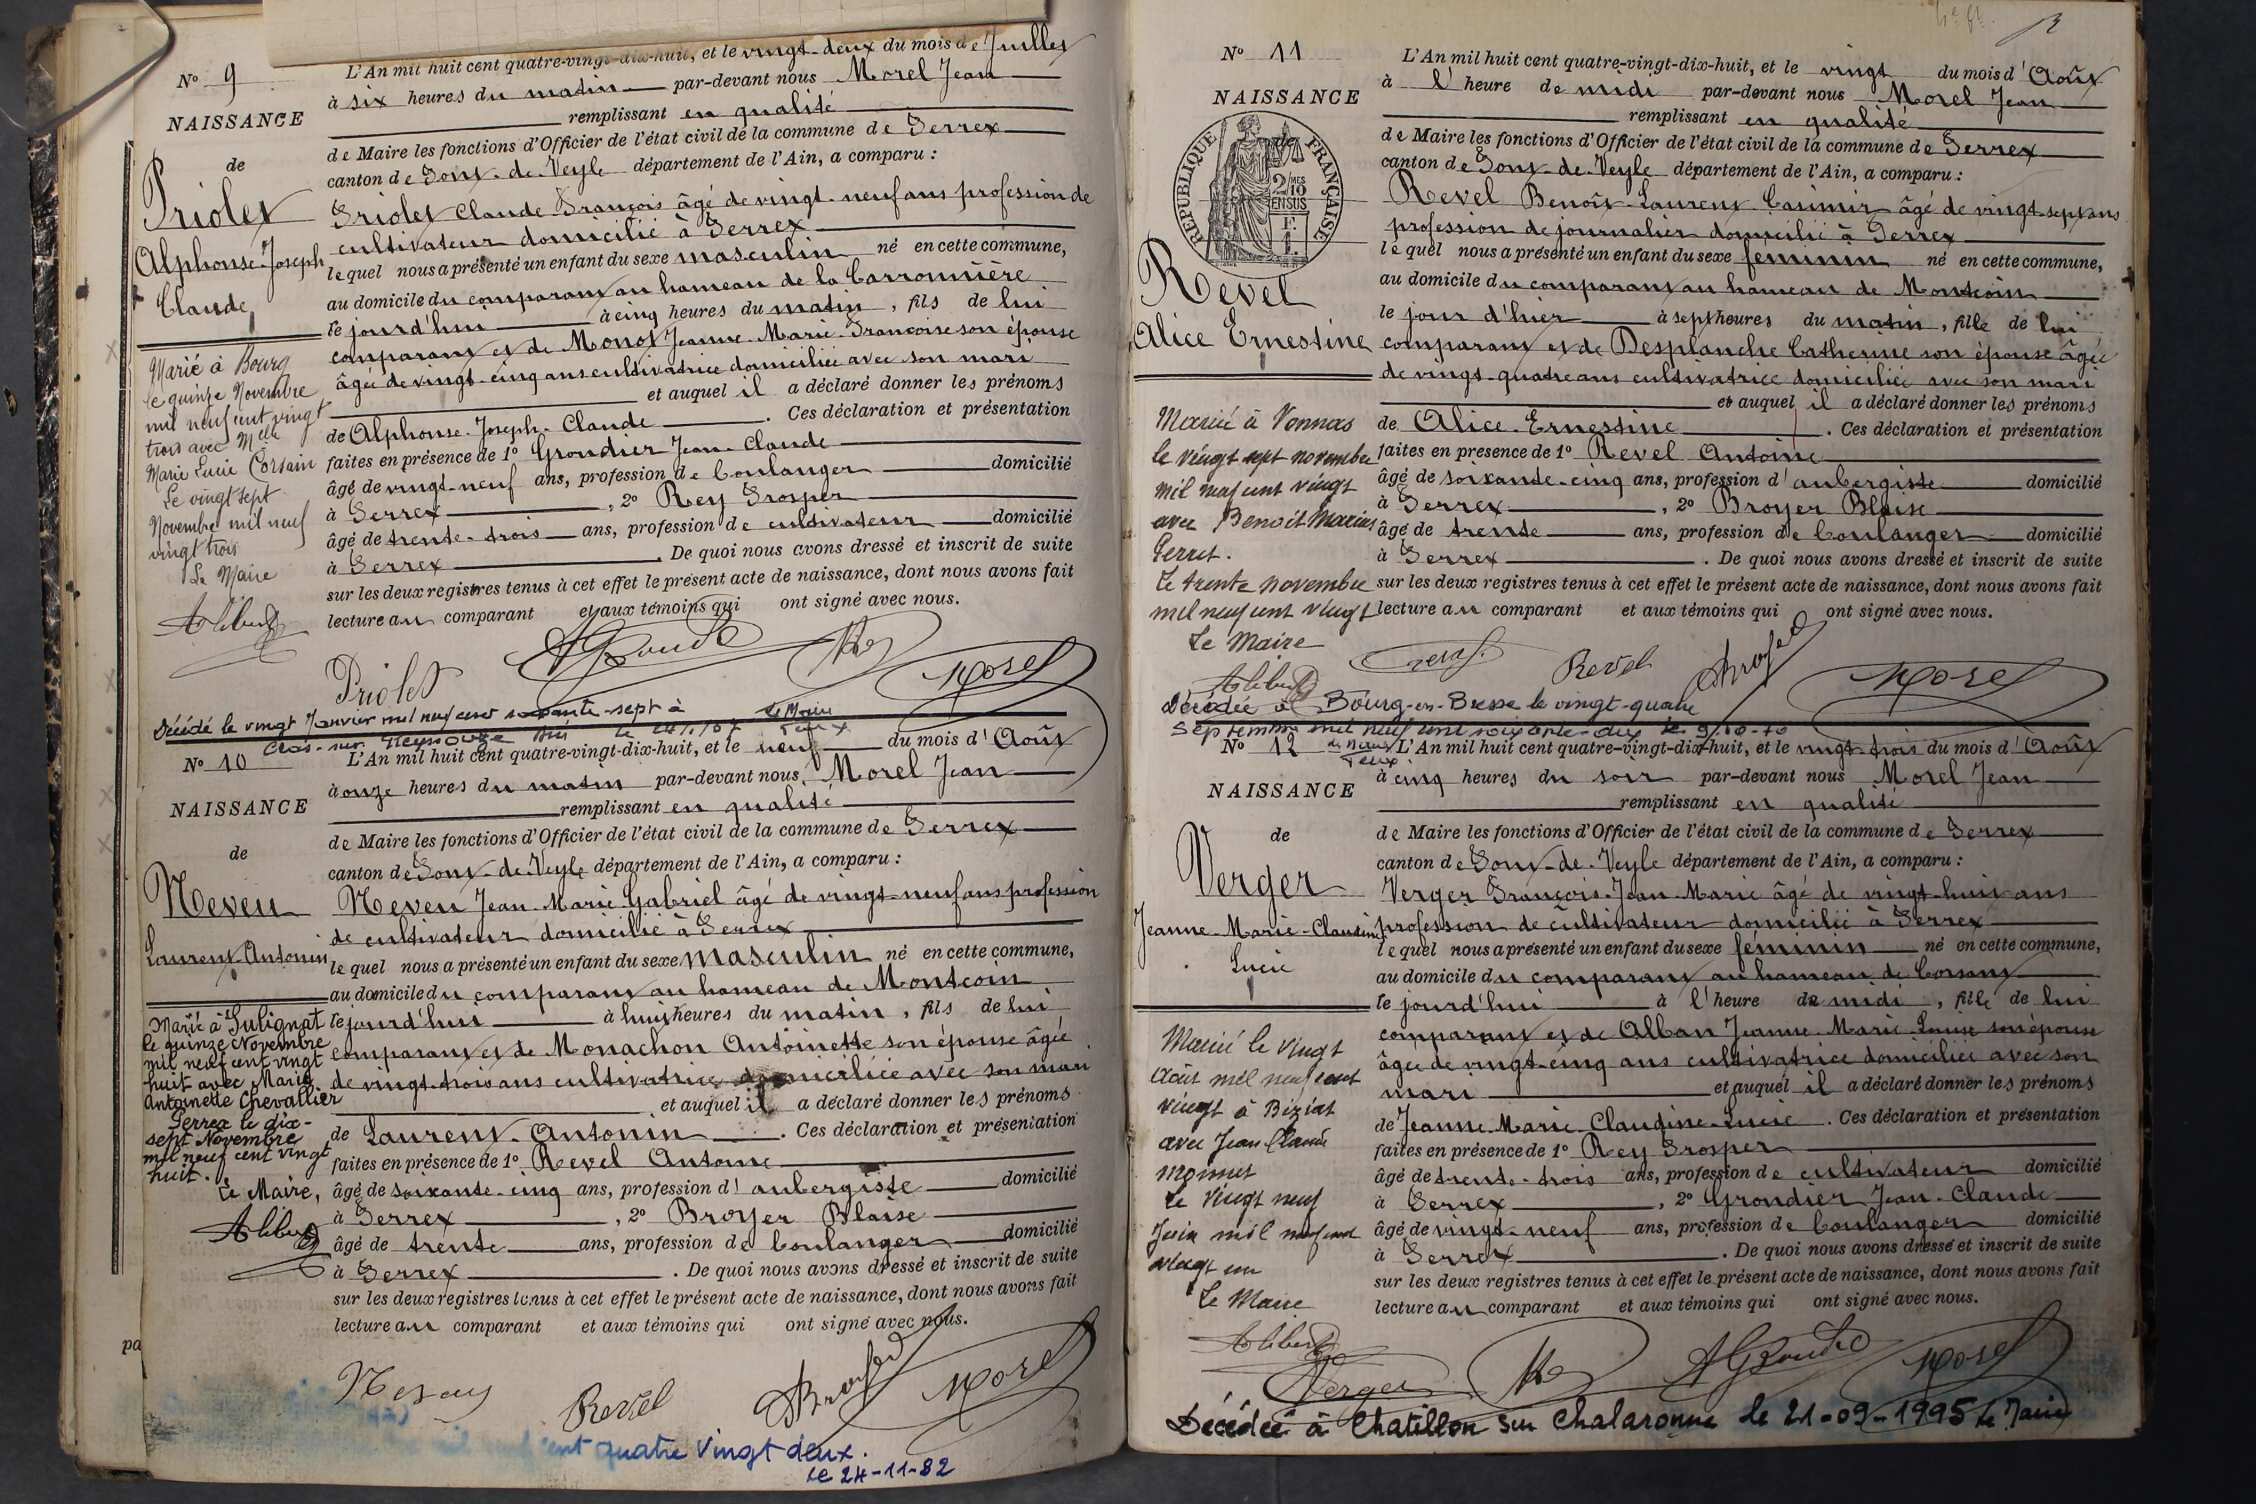 N° 9
NAISSANCE
de
Priolet
Alphonse-Joseph
Claude
Marié à Bourg
le quinze Novembre
mil neuf cent vingt
trois avec Melle
Marie Lucie Corsain
Le vingt sept
Novembre mil neuf
vingt trois
Le Maire
L'An mil huit cent quatre-vingt-dix-huit, et le vingt-deux du mois de Juillet
à six heures du matin par-devant nous Morel Jean
remplissant en qualité
de Maire les fonctions d'Officier de l'état civil de la commune de Perrex
canton de Pont-de-Veyle département de l'Ain, a comparu :
Priolet Claude François âgé de vingt-neuf ans profession de
cultivateur domicilié à Perrex
lequel nous a présenté un enfant du sexe masculin né en cette commune,
au domicile du comparant au hameau de la Carronnière
le jourd'hui à cinq heures du matin, fils de lui
comparant et de Monot Jeanne-Marie-Françoise son épouse
âgée de vingt-cinq ans cultivatrice domiciliée avec son mari
et auquel il a déclaré donner les prénoms
de Alphonse-Joseph-Claude. Ces déclaration et présentation
faites en présence de 1° Grondier Jean-Claude
âgé de vingt-neuf ans, profession de boulanger domicilié
à Perrex, 2° Rey Prosper
âgé de trente-trois ans, profession de cultivateur domicilié
à Perrex. De quoi nous avons dressé et inscrit de suite
sur les deux registres tenus à cet effet le présent acte de naissance, dont nous avons fait
lecture au comparant et aux témoins qui ont signé avec nous.
Priolet Rey Morel
Décédé le vingt Janvier mil neuf cent soixante-sept à
Le Maire
N° 10
NAISSANCE
de
Neveu
Laurent-Antonin
Marié à Sulignat
le quinze Novembre
mil neuf cent vingt
huit avec Marie
Antoinette Chevallier
Perrex le dix-
sept Novembre
mil neuf cent vingt
huit.
Le Maire,
L'An mil huit cent quatre-vingt-dix-huit, et le neuf du mois d'Août
à onze heures du matin par-devant nous, Morel Jean
remplissant en qualité
de Maire les fonctions d'Officier de l'état civil de la commune de Perrex
canton de Pont-de-Veyle département de l'Ain, a comparu :
Neveu Jean-Marie Gabriel âgé de vingt-neuf ans profession
de cultivateur domicilié à Perrex
lequel nous a présenté un enfant du sexe masculin né en cette commune,
au domicile du comparant au hameau de Montcoin
le jourd'hui à huit heures du matin, fils de lui
comparant et de Monachon Antoinette son épouse âgée
de vingt-trois ans cultivatrice domiciliée avec son mari
et auquel il a déclaré donner les prénoms
de Laurent-Antonin. Ces déclaration et présentation
faites en présence de 1° Revel Antoine
âgé de soixante-cinq ans, profession d'aubergiste domicilié
à Perrex, 2° Broyer Blaise
âgé de trente ans, profession de boulanger domicilié
à Perrex. De quoi nous avons dressé et inscrit de suite
sur les deux registres tenus à cet effet le présent acte de naissance, dont nous avons fait
lecture au comparant et aux témoins qui ont signé avec nous.
Neveu Revel Broyer Morel
cent quatre vingt deux.
Le 24-11-82
N° 11
NAISSANCE
de
RÉPUBLIQUE FRANÇAISE
2/10 MES
EN SUS
Revel
Alice Ernestine
Mariée à Vonnas
le vingt sept novembre
mil neuf cent vingt
avec Benoit Marius
Perret.
Le trente novembre
mil neuf cent vingt
Le Maire
L'An mil huit cent quatre-vingt-dix-huit, et le vingt du mois d'Août
à l'heure de midi par-devant nous Morel Jean
remplissant en qualité
de Maire les fonctions d'Officier de l'état civil de la commune de Perrex
canton de Pont-de-Veyle département de l'Ain, a comparu :
Revel Benoît-Laurent Casimir âgé de vingt-sept ans
profession de journalier domicilié à Perrex
lequel nous a présenté un enfant du sexe féminin né en cette commune,
au domicile du comparant au hameau de Montcoin
le jour d'hier à sept heures du matin, fille de lui
comparant et de Desplanche Catherine son épouse âgée
de vingt-quatre ans cultivatrice domiciliée avec son mari
et auquel il a déclaré donner les prénoms
de Alice-Ernestine. Ces déclaration et présentation
faites en présence de 1° Revel Antoine
âgé de soixante-cinq ans, profession d'aubergiste domicilié
à Perrex, 2° Broyer Blaise
âgé de trente ans, profession de boulanger domicilié
à Perrex. De quoi nous avons dressé et inscrit de suite
sur les deux registres tenus à cet effet le présent acte de naissance, dont nous avons fait
lecture au comparant et aux témoins qui ont signé avec nous.
Revel Broyer Morel
Décédée à Bourg-en-Bresse le vingt-quatre
Septembre mil neuf cent soixante-dix
N° 12
NAISSANCE
de
Verger
Jeanne-Marie-Claudine
Lucie
Marié le vingt
août mil neuf cent
vingt à Biziat
avec Jean Claude
Monnet
Le vingt neuf
Juin mil neuf cent
vingt un
Le Maire
L'An mil huit cent quatre-vingt-dix-huit, et le vingt-trois du mois d'Août
à cinq heures du soir par-devant nous Morel Jean
remplissant en qualité
de Maire les fonctions d'Officier de l'état civil de la commune de Perrex
canton de Pont-de-Veyle département de l'Ain, a comparu :
Verger François-Jean-Marie âgé de vingt-huit ans
profession de cultivateur domicilié à Perrex
lequel nous a présenté un enfant du sexe féminin né en cette commune,
au domicile du comparant au hameau de Corsant
le jourd'hui à l'heure de midi, fille de lui
comparant et de Alban Jeanne-Marie-Louise son épouse
âgée de vingt-cinq ans cultivatrice domiciliée avec son
mari et auquel il a déclaré donner les prénoms
de Jeanne-Marie-Claudine-Lucie. Ces déclaration et présentation
faites en présence de 1° Rey Prosper
âgé de trente-trois ans, profession de cultivateur domicilié
à Perrex, 2° Grondier Jean-Claude
âgé de vingt-neuf ans, profession de boulanger domicilié
à Perrex. De quoi nous avons dressé et inscrit de suite
sur les deux registres tenus à cet effet le présent acte de naissance, dont nous avons fait
lecture au comparant et aux témoins qui ont signé avec nous.
Verger Rey Morel
Décédée à Chatillon sur Chalaronne le 21-09-1995 le Maire